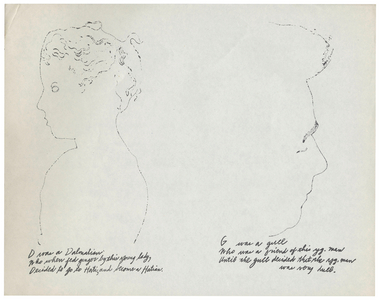 D was a Dalmatian
Who when fed by this young lady,
Decided to go to Haiti, and become a Haitian.
G was a gull
Who was a friend of this yg. man
Until the gull decided that the yg. man
was very dull.